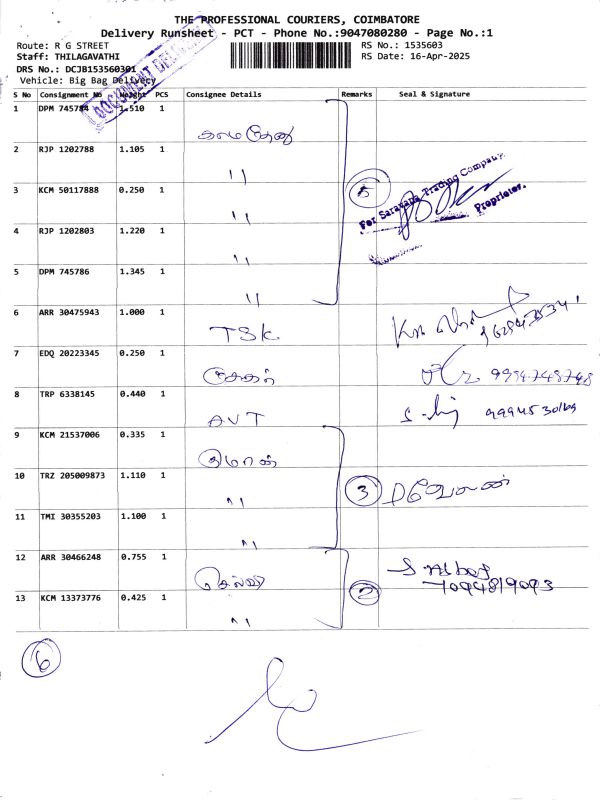 THE PROFESSIONAL COURIERS, COIMBATORE
Delivery Runsheet - PCT - Phone No.:9047080280 - Page No.:1
Route: R G STREET
RS No.: 1535603
Staff: THILAGAVATHI
RS Date: 16-Apr-2025
DRS No.: DCJB153560301
Vehicle: Big Bag Delivery
DOCUMENT DELIVERY
S No Consignment No Weight PCS Consignee Details Remarks Seal & Signature
1 DPM 745784 1.510 1
2 RJP 1202788 1.105 1 "
3 KCM 50117888 0.250 1 " 5
For Saravana Trading Company
Proprietor.
4 RJP 1202803 1.220 1 "
5 DPM 745786 1.345 1 "
6 ARR 30475943 1.000 1 TSK
7 EDQ 20223345 0.250 1 9994748748
8 TRP 6338145 0.440 1 AVT
9 KCM 21537006 0.335 1
10 TRZ 205009873 1.110 1 " 3
11 TMI 30355203 1.100 1 "
12 ARR 30466248 0.755 1 செல்வி 2
7094819093
13 KCM 13373776 0.425 1 "
6